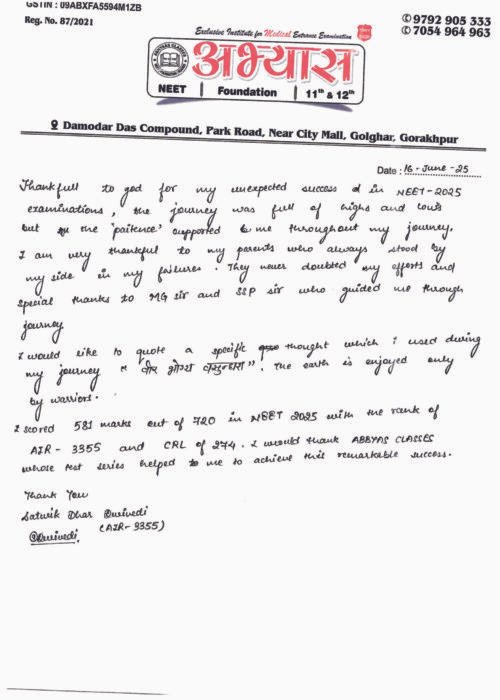 GSTIN : 09ABXFA5594M1ZB
Reg. No. 87/2021
✆ 9792 905 333
✆ 7054 964 963
Exclusive Institute for Medical Entrance Examination
अभ्यास
NEET | Foundation | 11th & 12th
Damodar Das Compound, Park Road, Near City Mall, Golghar, Gorakhpur
Date : 16-June-25
Thankfull to god for my unexpected success in NEET-2025
examinations, the journey was full of highs and lows
but the 'paitence' supported me throughout my journey.
I am very thankful to my parents who always stood by
my side in my failures. They never doubted my efforts and
special thanks to MG sir and SSP sir who guided me through
journey
I would like to quote a specific thought which i used during
my journey " वीर भोग्य वसुन्धरा". The earth is enjoyed only
by warriors.
I scored 581 marks out of 720 in NEET 2025 with the rank of
AIR - 3355 and CRL of 274. I would thank ABBYAS CLASSES
whose test series helped to me to achieve this remarkable success.
Thank You
Satwik Dhar Dwivedi
(AIR-3355)
Dwivedi